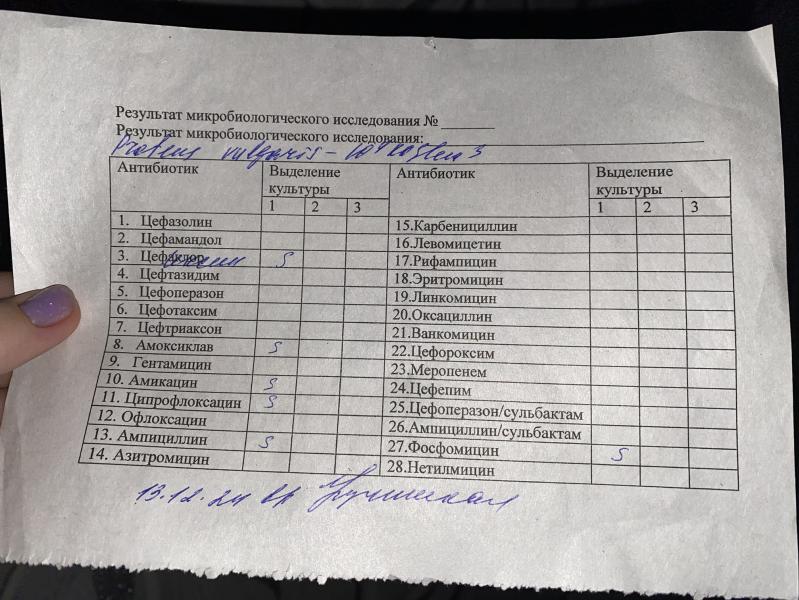 Результат микробиологического исследования № ________
Результат микробиологического исследования:
Proteus vulgaris – 10
Антибиотик Выделение культуры Антибиотик Выделение культуры
1 2 3 1 2 3
1. Цефазолин 15.Карбенициллин
2. Цефамандол 16.Левомицетин
3. Цефаклор S 17.Рифампицин
4. Цефтазидим 18.Эритромицин
5. Цефоперазон 19.Линкомицин
6. Цефотаксим 20.Оксациллин
7. Цефтриаксон 21.Ванкомицин
8. Амоксиклав S 22.Цефороксим
9. Гентамицин 23.Меропенем
10. Амикацин S 24.Цефепим
11. Ципрофлоксацин S 25.Цефоперазон/сульбактам
12. Офлоксацин 26.Ампициллин/сульбактам
13. Ампициллин S 27.Фосфомицин S
14. Азитромицин 28.Нетилмицин
13.12.24 вр